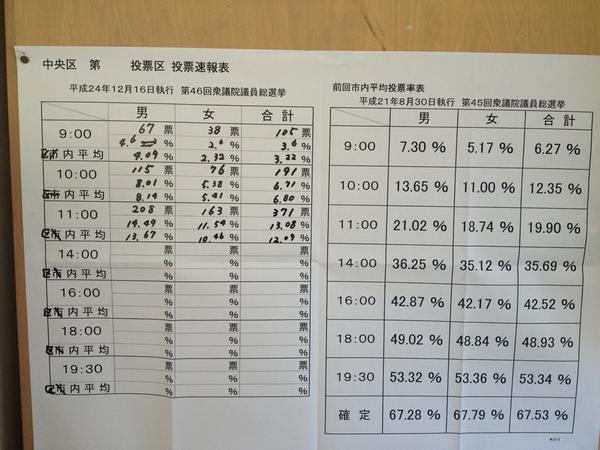 中央区 第 投票区 投票速報表
平成24年12月16日執行 第46回衆議院議員総選挙
男 女 合計
9:00 67 票 38 票 105 票
4.6 % 2.6 % 3.6 %
内平均 4.09 % 2.32 % 3.22 %
10:00 115 票 76 票 191 票
8.01 % 5.38 % 6.71 %
内平均 8.14 % 5.41 % 6.80 %
11:00 208 票 163 票 371 票
14.49 % 11.54 % 13.08 %
内平均 13.67 % 10.46 % 12.09 %
14:00 票 票 票
% % %
内平均 % % %
16:00 票 票 票
% % %
内平均 % % %
18:00 票 票 票
% % %
内平均 % % %
19:30 票 票 票
% % %
内平均 % % %
前回市内平均投票率表
平成21年8月30日執行 第45回衆議院議員総選挙
男 女 合計
9:00 7.30 % 5.17 % 6.27 %
10:00 13.65 % 11.00 % 12.35 %
11:00 21.02 % 18.74 % 19.90 %
14:00 36.25 % 35.12 % 35.69 %
16:00 42.87 % 42.17 % 42.52 %
18:00 49.02 % 48.84 % 48.93 %
19:30 53.32 % 53.36 % 53.34 %
確定 67.28 % 67.79 % 67.53 %